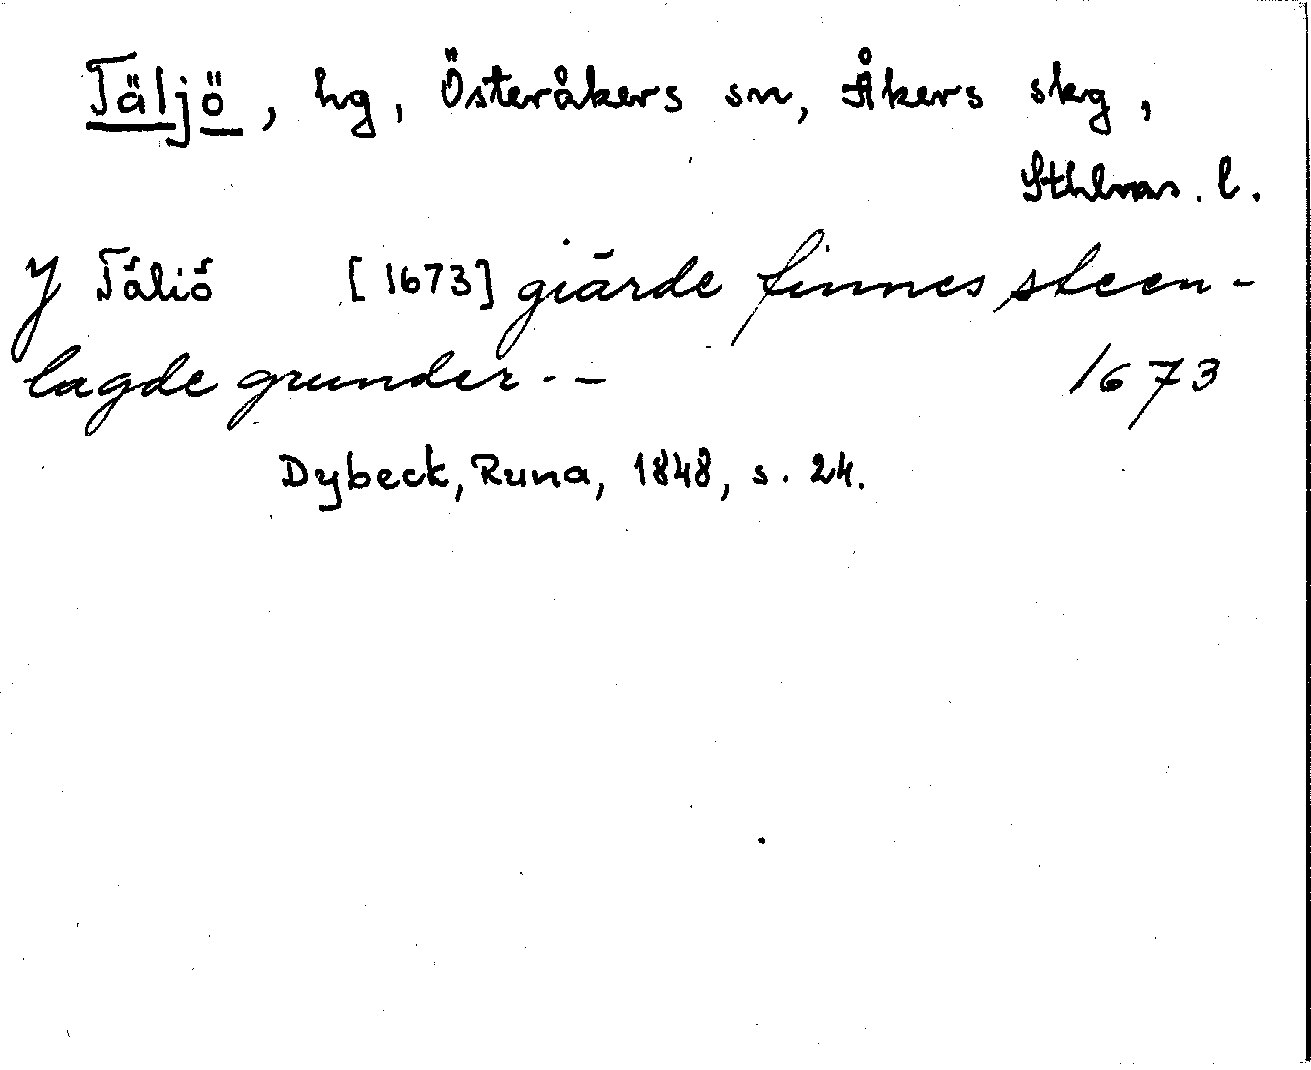 Täljö, hg, Österåkers sn, Åkers skg,
Sthlms. l.
J Täliö [1673] giärde finnes steen-
lagde grunder. - 1673
Dybeck, Runa, 1848, s. 24.